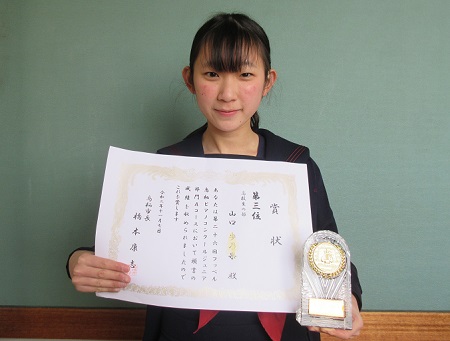 賞状
第三位
高校生の部
山口
殿
あなたは第二十六回フッペル
鳥栖ピアノコンクールジュニア
部門Aコースにおいて頭書の
成績を収められましたので
これを賞します
令和二年十一月七日
鳥栖市長
橋本康志